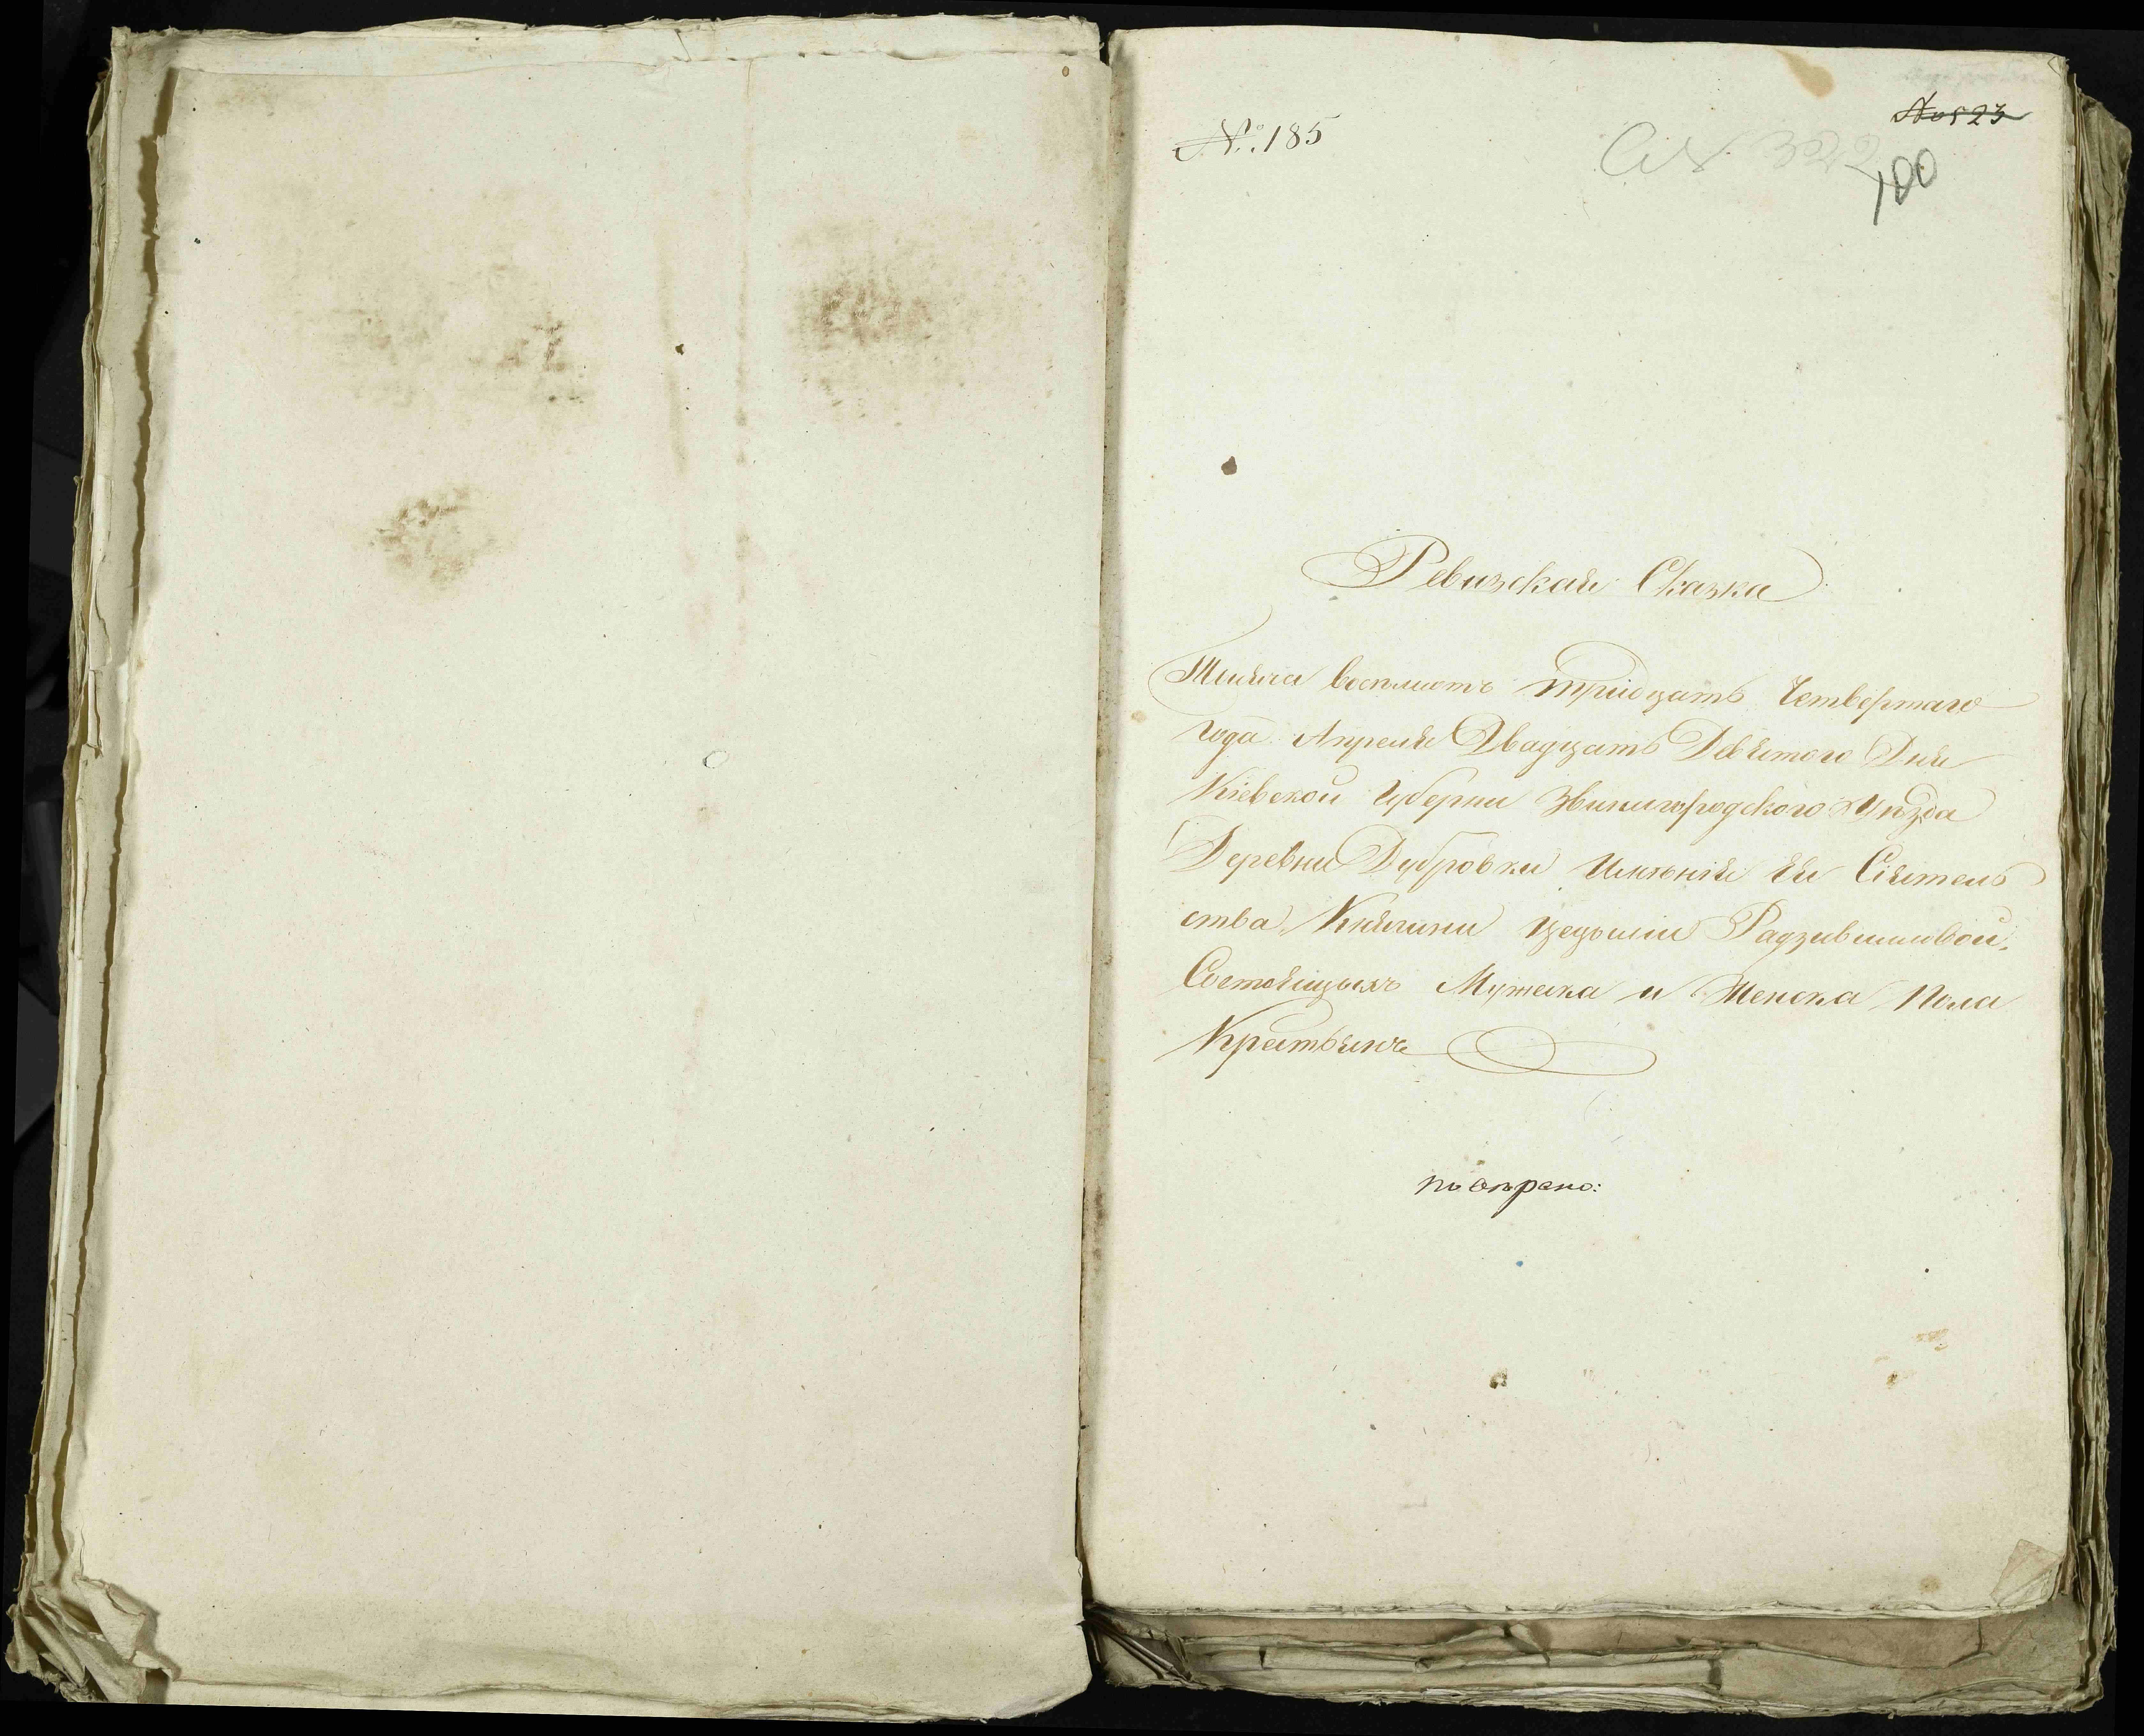 №: 185
№ 523
100
Ревизская Сказка
Тысяча восемьсотъ тридцать Четвертаго
года Апреля Двадцать Девятого Дня
Кіевской губерни Звинигородского Уѣзда
Деревни Дубровки Имѣнія Ея Сіятель
ства Княгини Цецыліи Радзивилловой.
Состоящыхъ Мужеска и Женска Пола
Крестьянъ